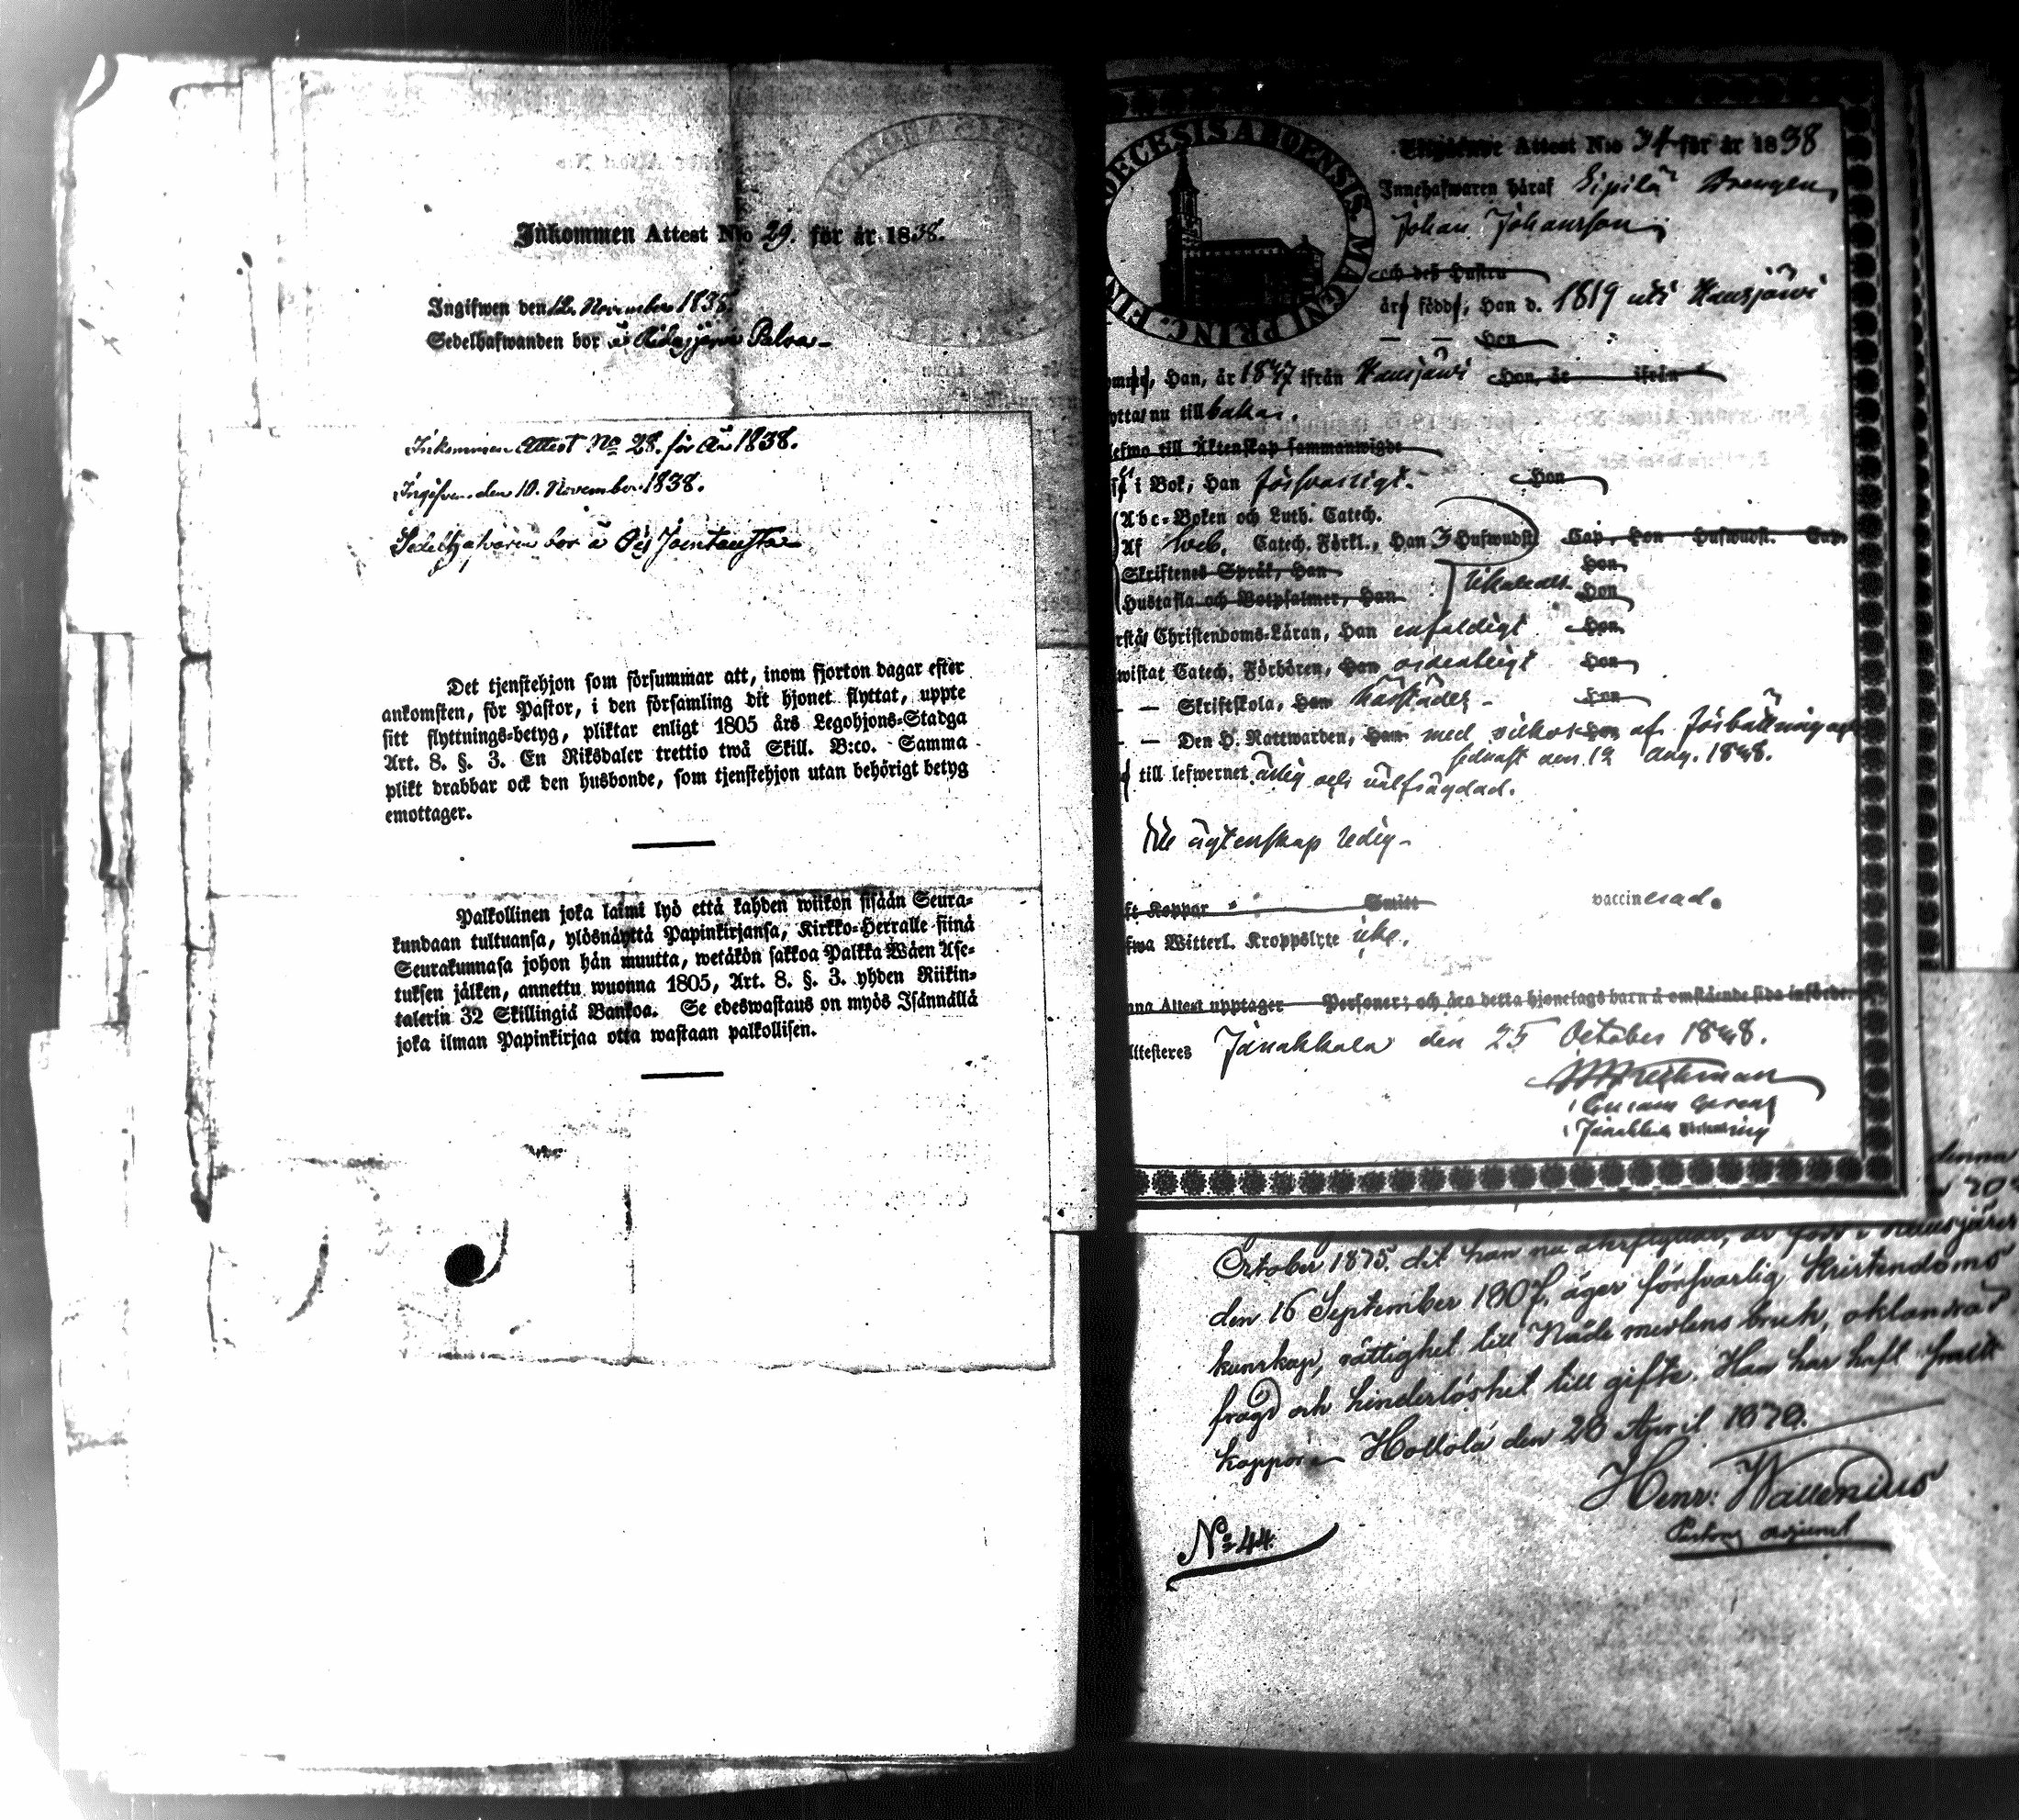 Inkommen Attest N:o 29. för år 1838.
Ingifwen den 12. November 1838.
Sedelhafwanden bor å Palva
Inkommen Attest No 28. för år 1838.
Ingifven den 10. November 1838.
bor å
Det tjenstehjon som försummar att, inom fjorton dagar efter
ankomsten, för Pastor, i den församling dit hjonet flyttat, uppte
sitt flyttnings-betyg, pliktar enligt 1805 års Legohjons-Stadga
Art. 8. §. 3. En Riksdaler trettio twå Skill. B:co. Samma
plikt drabbar ock den husbonde, som tjenstehjon utan behörigt betyg
emottager.
Palkollinen joka laimi lyö että kahden wiikon sisään Seura-
kundaan tultuansa, ylösnäyttä Papinkirjansa, Kirkko-Herralle siinä
Seurakunnasa johon hän muutta, wetäkön sakkoa Palkka Wäen Ase-
tuksen jälken, annettu wuonna 1805, Art. 8. §. 3. yhden Riikin-
talerin 32 Skillingiä Bankoa. Se edeswastaus on myös Isännällä
joka ilman Papinkirjaa otta wastaan palkollisen.
OECESIS ABOENSIS MAGNI PRINC. FIN
Attest N:o 34 för år 1838
Innehafwaren häraf Sipilä Drengen
Johan Johansson
och deß Hustru
är född, Han d. 1819 uti Hausjärvi
— — Hon
Han, år 1837 ifrån Hausjärvi Hon, år ifrån
nu tillbaka.
till Äktenskap sammanwigde
i Bok, Han försvarligt. Hon
Abc-Boken och Luth. Catech.
Af Web. Catech. Förkl., Han 3 Hufwudst. Cap, Hon Hufwudst. Cap.
Skriftenes Språk, Han Hon
Hustafla och Botpsalmer, Han Hon
Christendoms-Läran, Han enfaldigt Hon
wistat Catech. Förhören, Han ordentligt Hon
— — Skriftskola, Han Hon
— — Den H. Nattwarden, Han med Hon af
sednast den 12 Aug. 1838.
till lefwernet ärlig och välfrägdad.
ägtenskap ledig.
Koppor Smitt vaccinerad.
Witterl. Kroppslyte icke.
Attest upptager Personer; och äro detta hjonelags barn å omstående sida införde.
Attesteres Janakkala den 25 October 1838.
denna
October 1875. dit han nu återflyttar, är född i Hausjärvi
den 16 September 1807, äger försvarlig kristendoms
kunskap, rättighet till Nådemedlens bruk, oklandrad
frägd och hinderlöshet till gifte. Han har haft
koppor. Hollola den 28 April 1878.
Henr: Wallenius
Pastors adjunct
No 44.